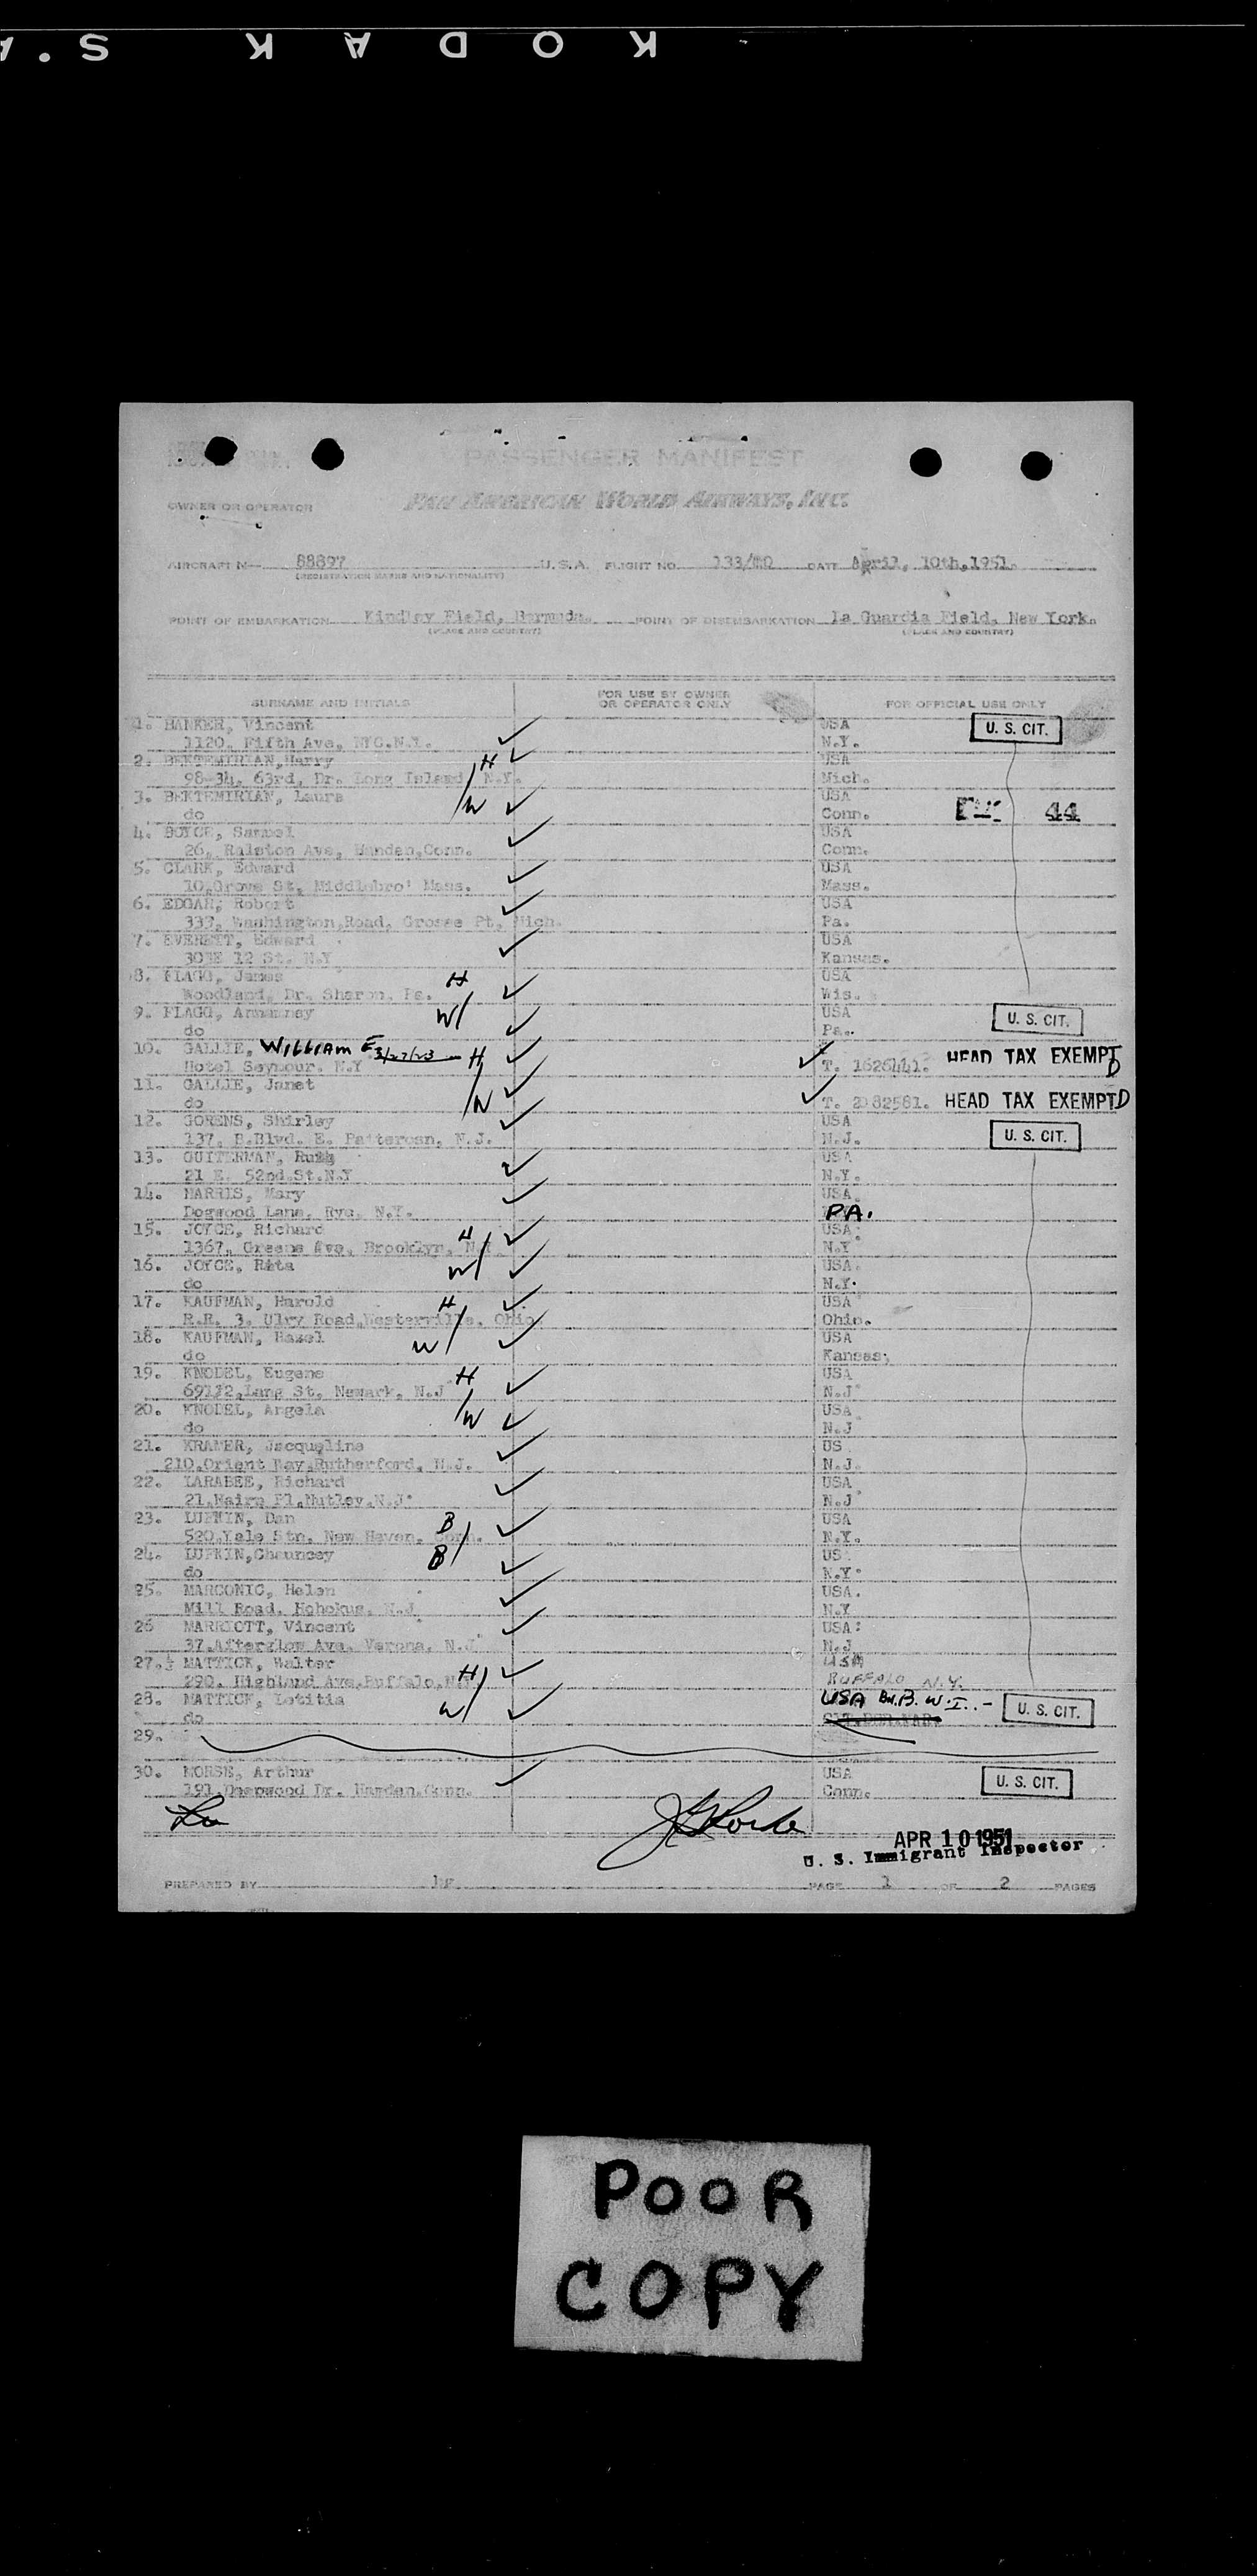 KODAK S.A
PASSENGER MANIFEST
OWNER OR OPERATOR PAN AMERICAN WORLD AIRWAYS, INC.
AIRCRAFT N— 88897 U.S.A. FLIGHT NO. 133/ DATE April, 10th,1951.
(REGISTRATION MARKS AND NATIONALITY)
POINT OF EMBARKATION Kindley Field, Bermuda. POINT OF DISEMBARKATION La Guardia Field, New York.
(PLACE AND COUNTRY) (PLACE AND COUNTRY)
SURNAME AND INITIALS FOR USE BY OWNER OR OPERATOR ONLY FOR OFFICIAL USE ONLY
1. BANKER, Vincent USA U. S. CIT.
1120, Fifth Ave, NYC.N.Y. N.Y.
2. BEKTEMIRIAN,Harry H USA
98-34, 63rd, Dr. Long Island, N.Y. Mich.
3. BEKTEMIRIAN, Laura W USA
do Conn. 44
4. BOYCE, Samuel USA
26, Ralston Ave, Hamden,Conn. Conn.
5. CLARK, Edward USA
10,Grove St, Middlebro' Mass. Mass.
6. EDGAR, Robert USA
333, Washington,Road, Grosse Pt, Mich. Pa.
7. EVERETT, Edward USA
12 St. N.Y Kansas.
8. FLAGG, James H USA
Woodland, Dr. Sharon, Pa. Wis.
9. FLAGG, W USA U. S. CIT.
do Pa.
10. GALLIE, WILLIAM E 3/27/23 H
Hotel Seymour. N.Y T. 1626441. HEAD TAX EXEMPT D
11. GALLIE, Janet
do W T. 2082581. HEAD TAX EXEMPT D
12. GORENS, Shirley USA
137, B.Blvd. E. Patterson, N.J. N.J. U. S. CIT.
13. GUITERMAN, Ruth USA
21 E. 52nd.St.N.Y N.Y.
14. HARRIS, Mary USA.
Dogwood Lane, Rye, N.Y. PA.
15. JOYCE, Richard H USA.
1367, Greene Ave, Brooklyn, N.Y. N.Y
16. JOYCE, Rita W USA.
do N.Y.
17. KAUFMAN, Harold H USA
R.R. 3, Ulry Road,Westerville, Ohio Ohio.
18. KAUFMAN, Hazel W USA
do Kansas.
19. KNODEL, Eugene H USA
Lang St, Newark, N.J N.J
20. KNODEL, Angela W USA
do N.J
21. KRAMER, Jacqueline US
210,Orient Way,Rutherford, N.J. N.J.
22. LARABEE, Richard USA
21,Nairn Pl,Nutley,N.J. N.J
23. LUFKIN, Dan B USA
520,Yale Stn. New Haven, Conn. N.Y.
24. LUFKIN,Chauncey B US
do N.Y.
25. MARCONIC, Helen USA.
Mill Road, Hohokus, N.J N.Y
26 MARRIOTT, Vincent USA.
37,Afterglow Ave, Verona, N.J. N.J
27. MATTICK, Walter USA
290, Highland Ave,Buffalo,N.Y. H BUFFALO N.Y.
28. MATTICK, Letitia W USA Bu.B. W.I.. – U. S. CIT.
do
29.
30. MORSE, Arthur USA U. S. CIT.
191,Deepwood Dr. Hamden,Conn. Conn.
APR 10 1951
U. S. Immigrant Inspector
PREPARED BY PAGE 1 OF 2 PAGES
POOR
COPY